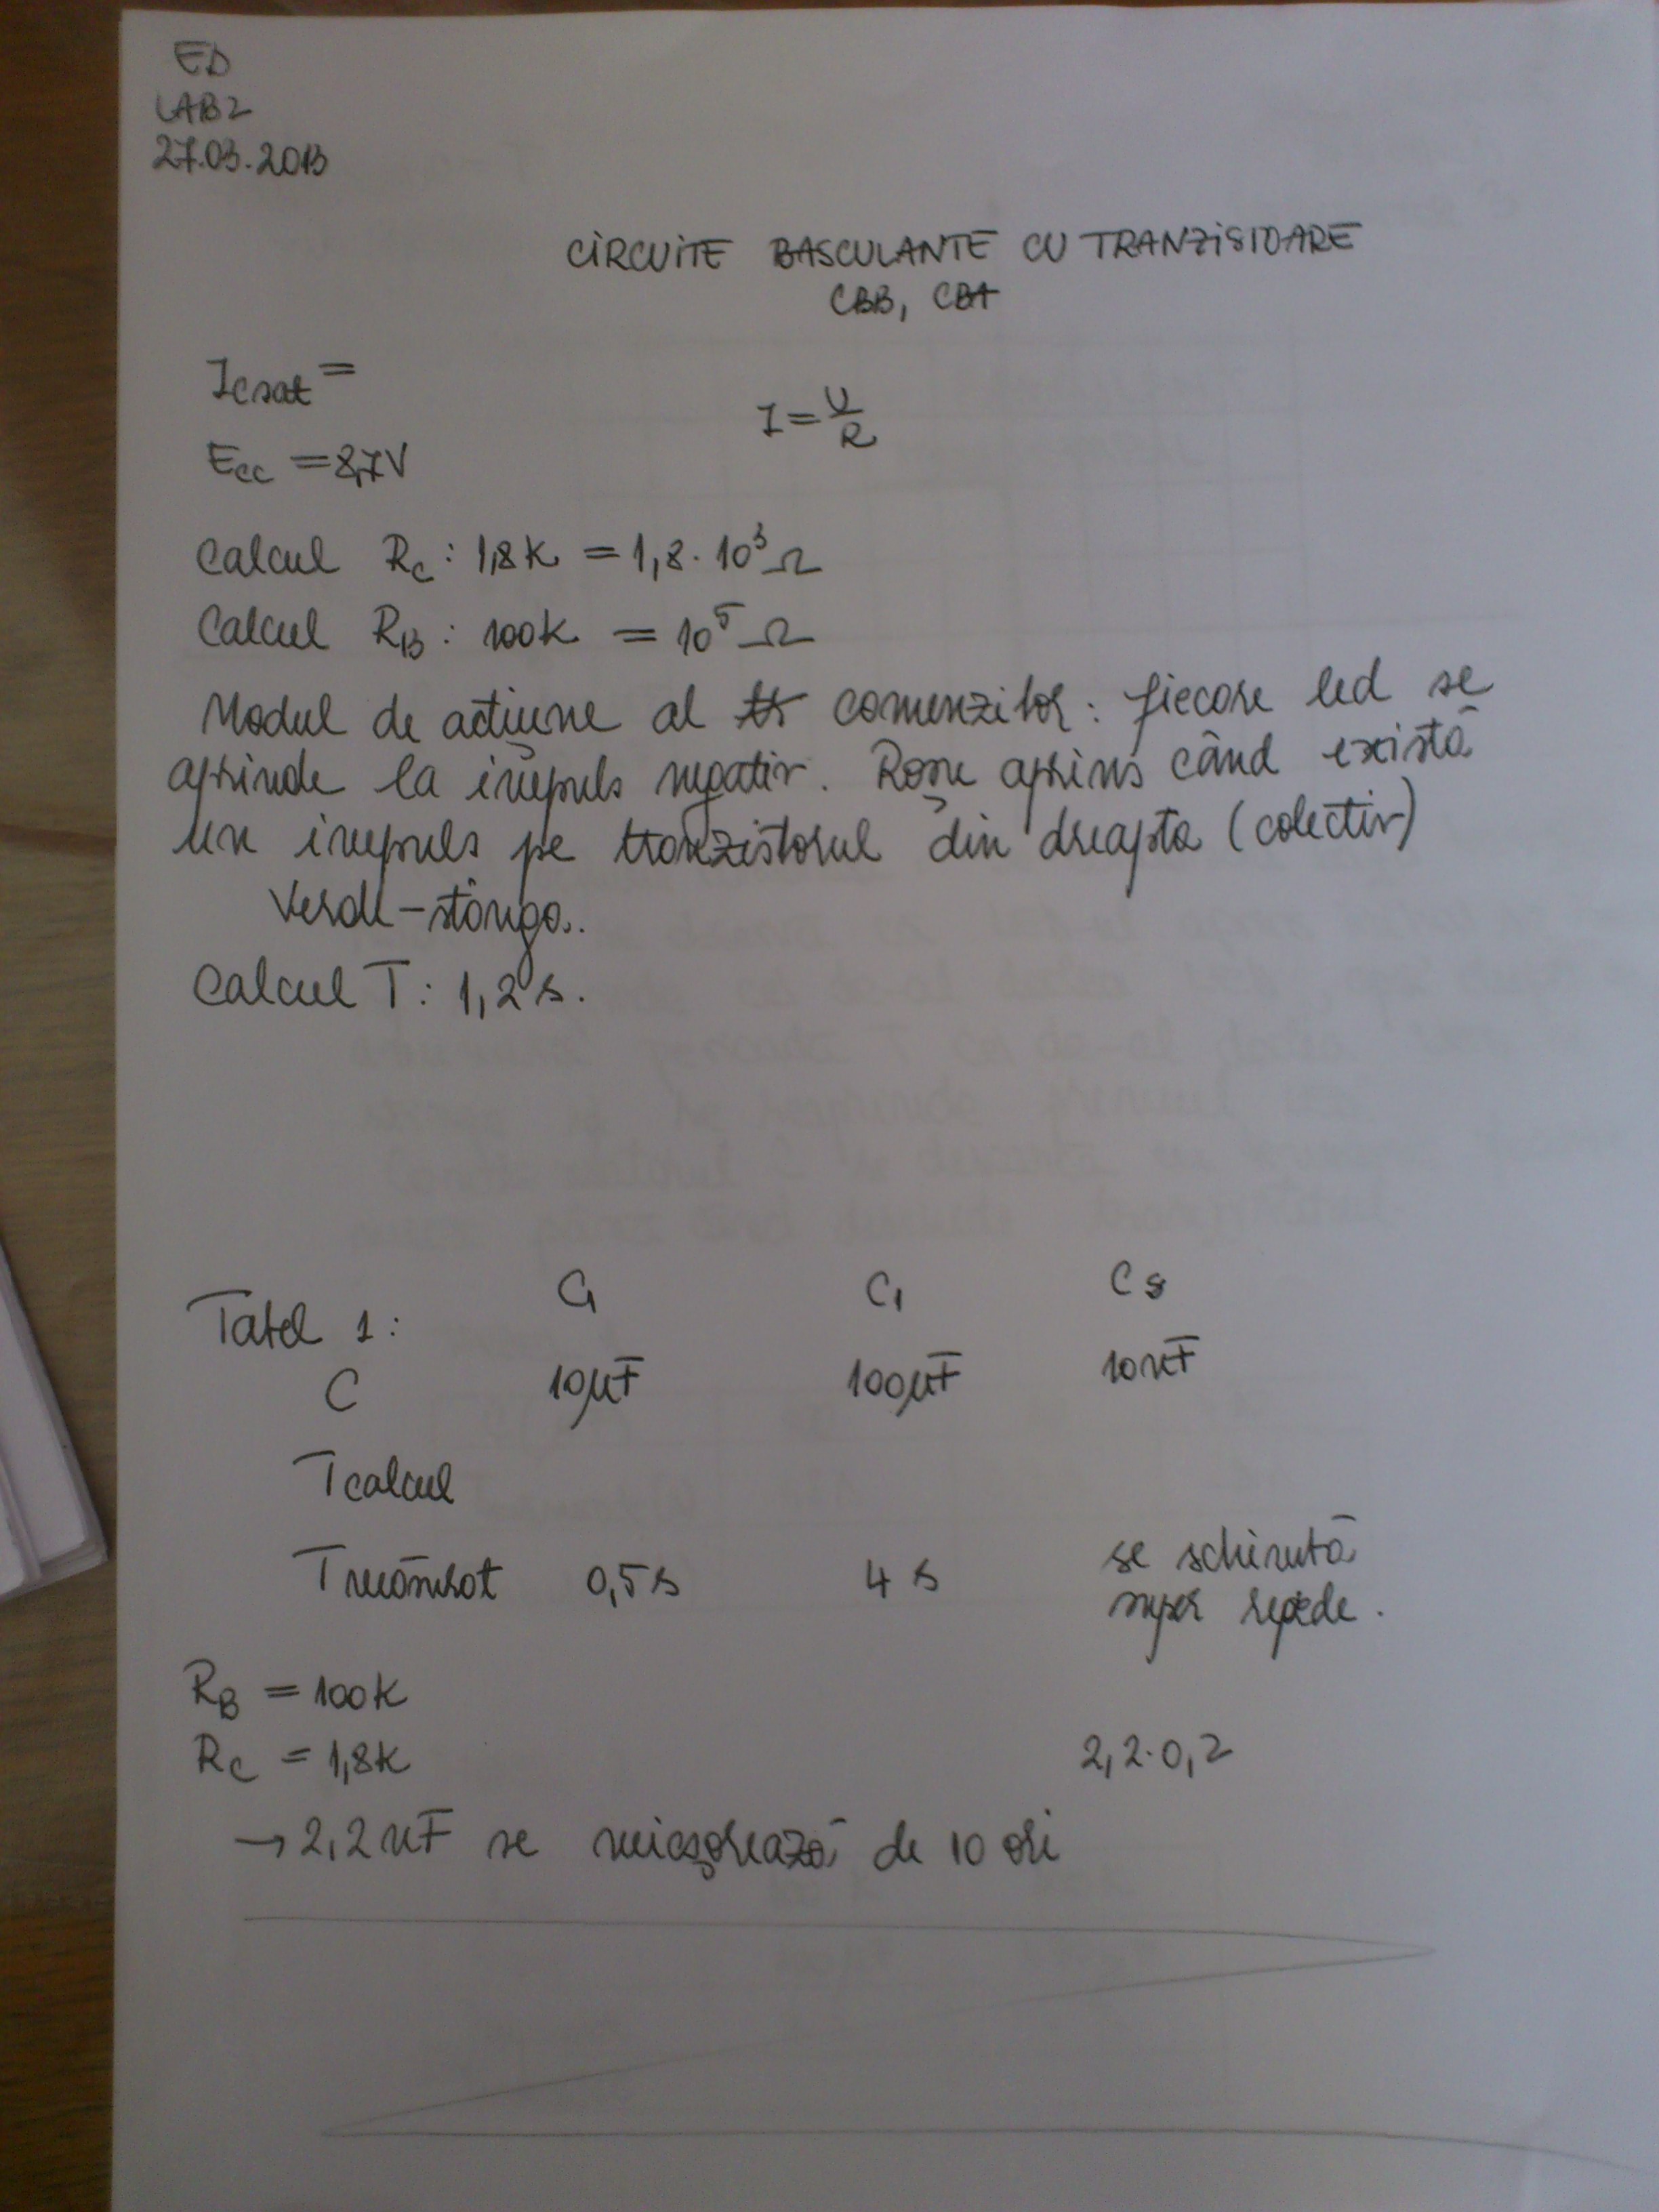 ED
LAB2
27.03.2013
CIRCUITE BASCULANTE CU TRANZISTOARE
CBB, CBA
Icsat =
I = U/R
Ecc = 8,7V
Calcul Rc: 1,8K = 1,8·10³ Ω
Calcul RB: 100K = 10⁵ Ω
Modul de acțiune al comenzilor: fiecare led se
aprinde la impuls negativ. Roșu aprins când există
un impuls pe tranzistorul din dreapta (colectiv)
Verde – stânga.
Calcul T: 1,2 s.
Tabel 1: C1 C1 C3
C 10µF 100µF 10nF
Tcalcul
Tmăsurat 0,5s 4 s se schimbă
super repede.
RB = 100K
Rc = 1,8K 2,2·0,2
→ 2,2nF se micșorează de 10 ori